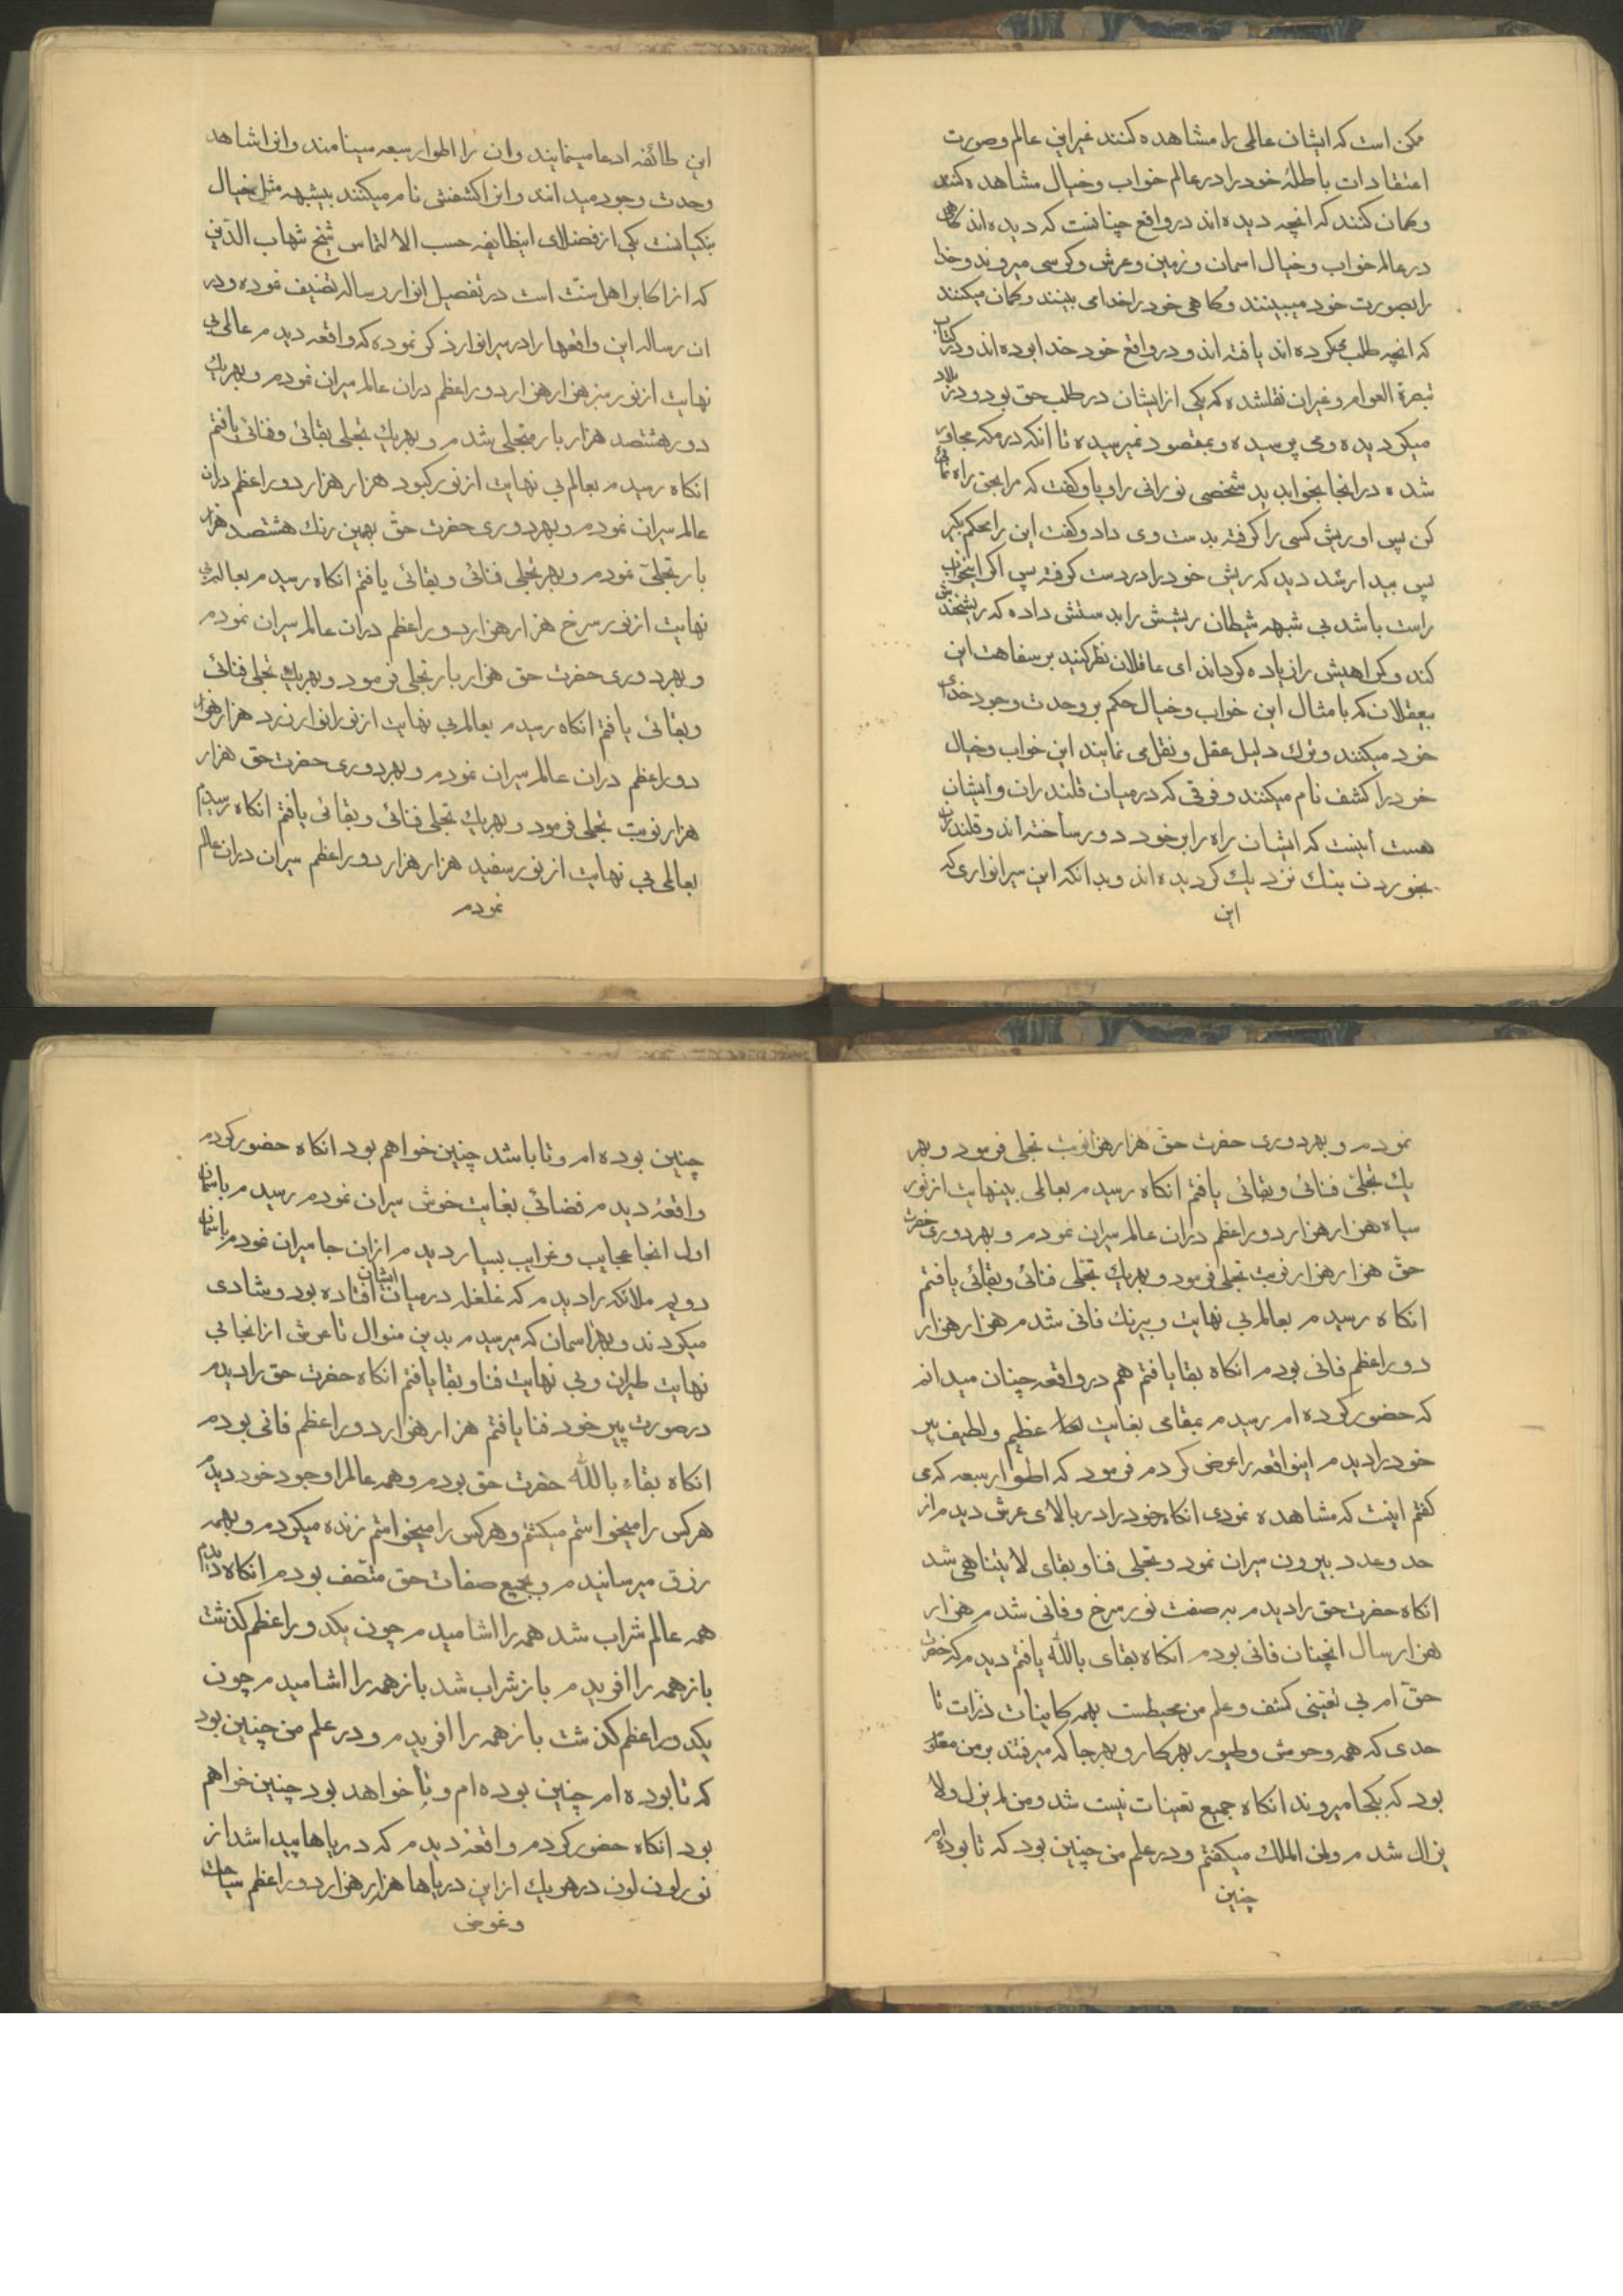 ممکن است که ایشان عالمی را مشاهده کنند غیر این عالم و صورت
اعتقادات باطلهٔ خود را در عالم خواب و خیال مشاهده کنند
و کمان کنند که انچه دیده اند در واقع چنانست که دیده اند کاهی
در عالم خواب و خیال اسمان و زمین و عرش و کرسی میروند و خدا
را بصورت خود میبینند و کاهی خود را خدا می بینند و کمان میکنند
که انچه طلب میکرده اند یافته اند و در واقع خود خدا بوده اند و در کتاب
تبصرة العوام و غیر ان نقلشده که یکی از ایشان در طلب حق بود و در بلاد
میکردیده و می پرسیده و بمقصود نمیرسیده تا انکه در مکه مجاور
شده در انجا بخواب دید شخصی نورانی را و باو کفت که مرا بحق راه نمائی
کن پس او ریش کسی را کرفته بدست وی داد و کفت این را محکم بکیر
پس بیدار شد دید که ریش خود را در دست کرفته پس اکر اینخواب
راست باشد بی شبهه شیطان ریشش را بدستش داده که ریشخندش
کند و کمراهیش را زیاده کرداند ای عاقلان نظر کنید بر سفاهت این
بیعقلان که بامثال این خواب و خیال حکم بر وحدت وجود خدای
خود میکنند و ترك دلیل عقل و نقل می نمایند این خواب و خیال
خود را کشف نام میکنند و فرقی که در میان قلندران و ایشان
هست اینست که ایشان راه را بر خود دور ساخته اند و قلندران
بخوردن بنك نزدیك کردیده اند و بدانکه این سیر انواری که
این
این طائفه ادعا مینمایند و ان را اطوار سبعه مینامند و انرا شاهد
وحدت وجود میدانند و انرا کشفش نام میکنند بیشبهه مثل خیال
بنکیانست یکی از فضلای اینطایفه حسب الالتماس شیخ شهاب الدّین
که از اکابر اهل سنّت است در تفصیل انوار رساله تصنیف نموده و در
ان رساله این واقعها را در سیر انوار ذکر نموده که واقعه دیدم عالمی بی
نهایت از نور سبز هزار هزار دور اعظم دران عالم سیران نمودم و بهر یك
دور هشتصد هزار بار متجلی شدم و بهر یك تجلی بقائی و فنائی یافتم
انکاه رسیدم بعالم بی نهایت از نور کبود هزار هزار دور اعظم دران
عالم سیران نمودم و بهر دوری حضرت حقّ بهمین رنك هشتصد هزار
بار تجلّی نمودم و بهر تجلی فنائی و بقائی یافتم انکاه رسیدم بعالم بی
نهایت از نور سرخ هزار هزار دور اعظم دران عالم سیران نمودم
و بهر دوری حضرت حق هزار بار تجلی فرمود و بهر یك تجلی فنائی
و بقائی یافتم انکاه رسیدم بعالم بی نهایت از نور انوار زرد هزار هزار
دور اعظم دران عالم سیران نمودم و بهر دوری حضرت حق هزار
هزار نوبت تجلی فرمود و بهر یك تجلی فنائی و بقائی یافتم انکاه رسیدم
بعالمی بی نهایت از نور سفید هزار هزار دور اعظم سیران دران عالم
نمودم
نمودم و بهر دوری حضرت حقّ هزار هزار نوبت تجلی فرمود و بهر
یك تجلّی فنائی و بقائی یافتم انکاه رسیدم بعالمی بینهایت از نور
سیاه هزار هزار دور اعظم دران عالم سیران نمودم و بهر دوری حضرت
حقّ هزار هزار نوبت تجلی فرمود و بهر یك تجلی فنائی و بقائی یافتم
انکاه رسیدم بعالم بی نهایت و بیرنك فانی شدم هزار هزار
دور اعظم فانی بودم انکاه بقا یافتم هم در واقعه چنان میدانم
که حضور کرده ام رسیدم بمقامی بغایت عظیم و لطیف پیر
خود را دیدم اینواقعه را عرض کردم فرمود که اطوار سبعه که می
کفتم اینست که مشاهده نمودی انکاه خود را در بالای عرش دیدم از
حد و عدد بیرون سیران نمود و تجلی فنا و بقای لا یتناهی شد
انکاه حضرت حق را دیدم به صفت نور سرخ و فانی شدم هزار
هزار سال انچنان فانی بودم انکاه بقای باللّه یافتم دیدم که حضرت
حقّ ام بی تعینی کشف و علم من محیطست بهمه کاینات ذرّات تا
حدی که همه وحوش و طیور بهر کار و بهر جا که میرفتند بر من معلوم
بود که بکجا میروند انکاه جمیع تعینات نیست شد و من لم یزل ولا
یزال شدم و لمن الملك میکفتم و در علم من چنین بود که تا بوده ام
چنین
چنین بوده ام و تا باشد چنین خواهم بود انکاه حضور کردم
واقعهٔ دیدم فضائی بغایت خوش سیران نمودم رسیدم باسمان
اول انجا عجایب و غرایب بسیار دیدم از ان جا سیران نمودم باسمان
دویم ملائکه را دیدم که غلغله در میان ایشان افتاده بود و شادی
میکردند و بهر اسمان که میرسیدم بدین منوال تا عرش از انجا بی
نهایت طیران و بی نهایت فنا و بقا یافتم انکاه حضرت حق را دیدم
در صورت پیر خود فنا یافتم هزار هزار دور اعظم فانی بودم
انکاه بقاء باللّه حضرت حق بودم و همه عالم را وجود خود دیدم
هر کس را میخواستم میکشتم و هر کس را میخواستم زنده میکردم و بهمه
رزق میرسانیدم و بجمیع صفات حق متّصف بودم انکاه دیدم
همه عالم شراب شد همه را اشامیدم چون یکدور اعظم کذشت
باز همه را افریدم باز شراب شد باز همه را اشامیدم چون
یکدور اعظم کذشت باز همه را افریدم و در علم من چنین بود
که تا بوده ام چنین بوده ام و تا خواهد بود چنین خواهم
بود انکاه حضور کردم واقعهٔ دیدم که دریاها پیدا شد از
نور لون لون در هر یك از این دریاها هزار هزار دور اعظم سیاحت
و غوص